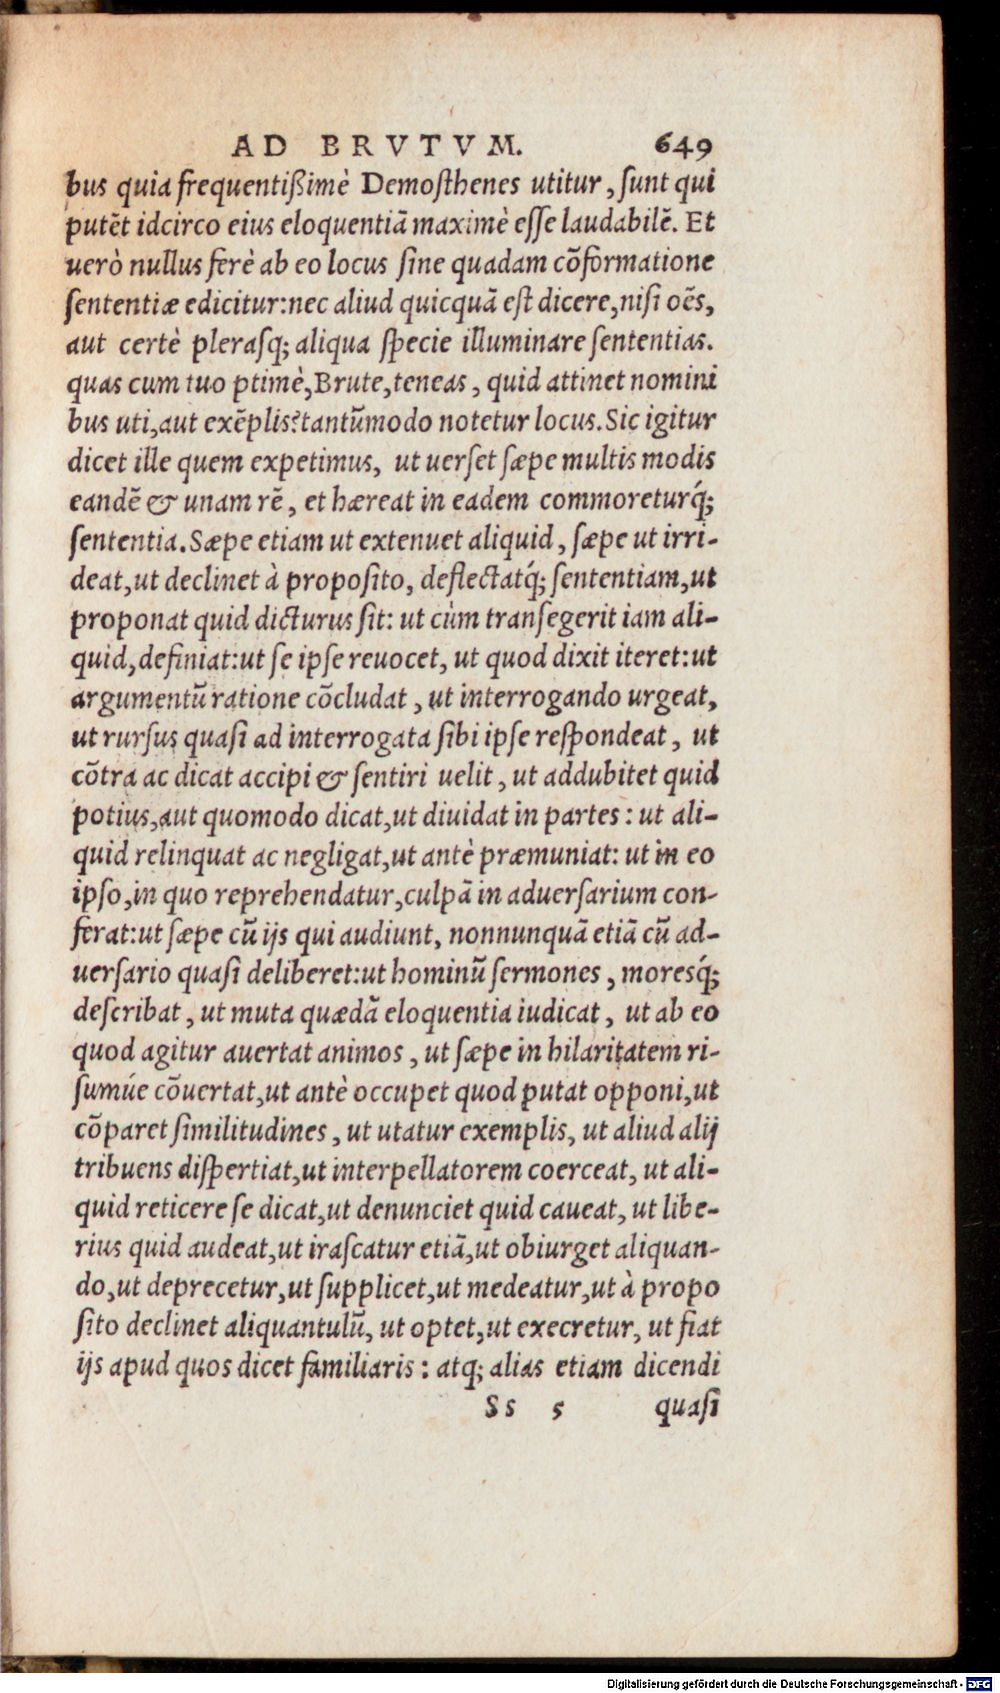 AD BRVTVM. 649
bus quia frequentißimè Demosthenes utitur, sunt qui
putēt idcirco eius eloquentiā maximè esse laudabilē. Et
uerò nullus ferè ab eo locus sine quadam cōformatione
sententiæ edicitur: nec aliud quicquā est dicere, nisi oēs,
aut certè plerasq; aliqua specie illuminare sententias.
quas cum tuo ptimè, Brute, teneas, quid attinet nomini
bus uti, aut exēplis? tantūmodo notetur locus. Sic igitur
dicet ille quem expetimus, ut uerset sæpe multis modis
eandē & unam rē, et hæreat in eadem commoreturq́;
sententia. Sæpe etiam ut extenuet aliquid, sæpe ut irri-
deat, ut declinet à proposito, deflectatq́; sententiam, ut
proponat quid dicturus sit: ut cùm transegerit iam ali-
quid, definiat: ut se ipse reuocet, ut quod dixit iteret: ut
argumentū ratione cōcludat, ut interrogando urgeat,
ut rursus quasi ad interrogata sibi ipse respondeat, ut
cōtra ac dicat accipi & sentiri uelit, ut addubitet quid
potius, aut quomodo dicat, ut diuidat in partes: ut ali-
quid relinquat ac negligat, ut antè præmuniat: ut in eo
ipso, in quo reprehendatur, culpā in aduersarium con-
ferat: ut sæpe cū ijs qui audiunt, nonnunquā etiā cū ad-
uersario quasi deliberet: ut hominū sermones, moresq́;
describat, ut muta quædā eloquentia iudicat, ut ab eo
quod agitur auertat animos, ut sæpe in hilaritatem ri-
sumúe cōuertat, ut antè occupet quod putat opponi, ut
cōparet similitudines, ut utatur exemplis, ut aliud alij
tribuens dispertiat, ut interpellatorem coerceat, ut ali-
quid reticere se dicat, ut denunciet quid caueat, ut libe-
rius quid audeat, ut irascatur etiā, ut obiurget aliquan-
do, ut deprecetur, ut supplicet, ut medeatur, ut à propo
sito declinet aliquantulū, ut optet, ut execretur, ut fiat
ijs apud quos dicet familiaris: atq; alias etiam dicendi
Ss 5 quasi
Digitalisierung gefördert durch die Deutsche Forschungsgemeinschaft - DFG